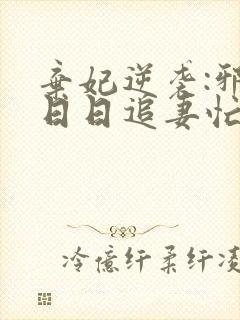 弃妃逆袭:邪
日日追妻忙
冷億纤柔纤凌